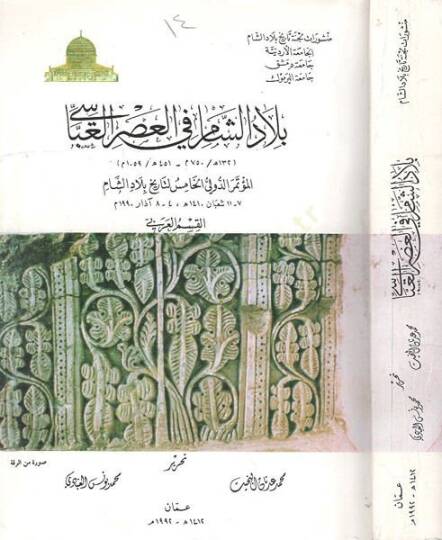 ١٤
منشورات لجنة تاريخ بلاد الشام
الجامعة الأردنية
جامعة دمشق
جامعة اليرموك
بلاد الشام في العصر العباسي
(١٣٢هـ/٧٥٠م - ٤٥١هـ/١٠٥٩م)
المؤتمر الدولي الخامس لتاريخ بلاد الشام
٧-١١ شعبان ١٤١٠هـ، ٤-٨ آذار ١٩٩٠م
القسم العربي
صورة من الرقة
تحرير
محمد عدنان البخيت
محمد يونس العبادي
عمان
١٤١٢هـ - ١٩٩٢م
منشورات لجنة تاريخ بلاد الشام
بلاد الشام في العصر العباسي
تحرير
محمد عدنان البخيت
محمد يونس العبادي
عمان
١٤١٢هـ - ١٩٩٢م